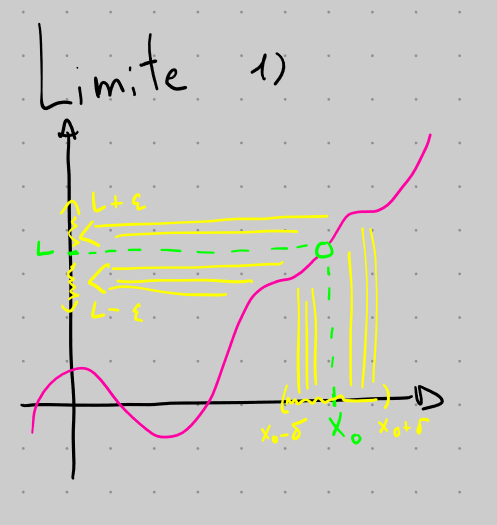 Limite 1)
L + ε
L
L - ε
x₀-δ x₀ x₀+δ